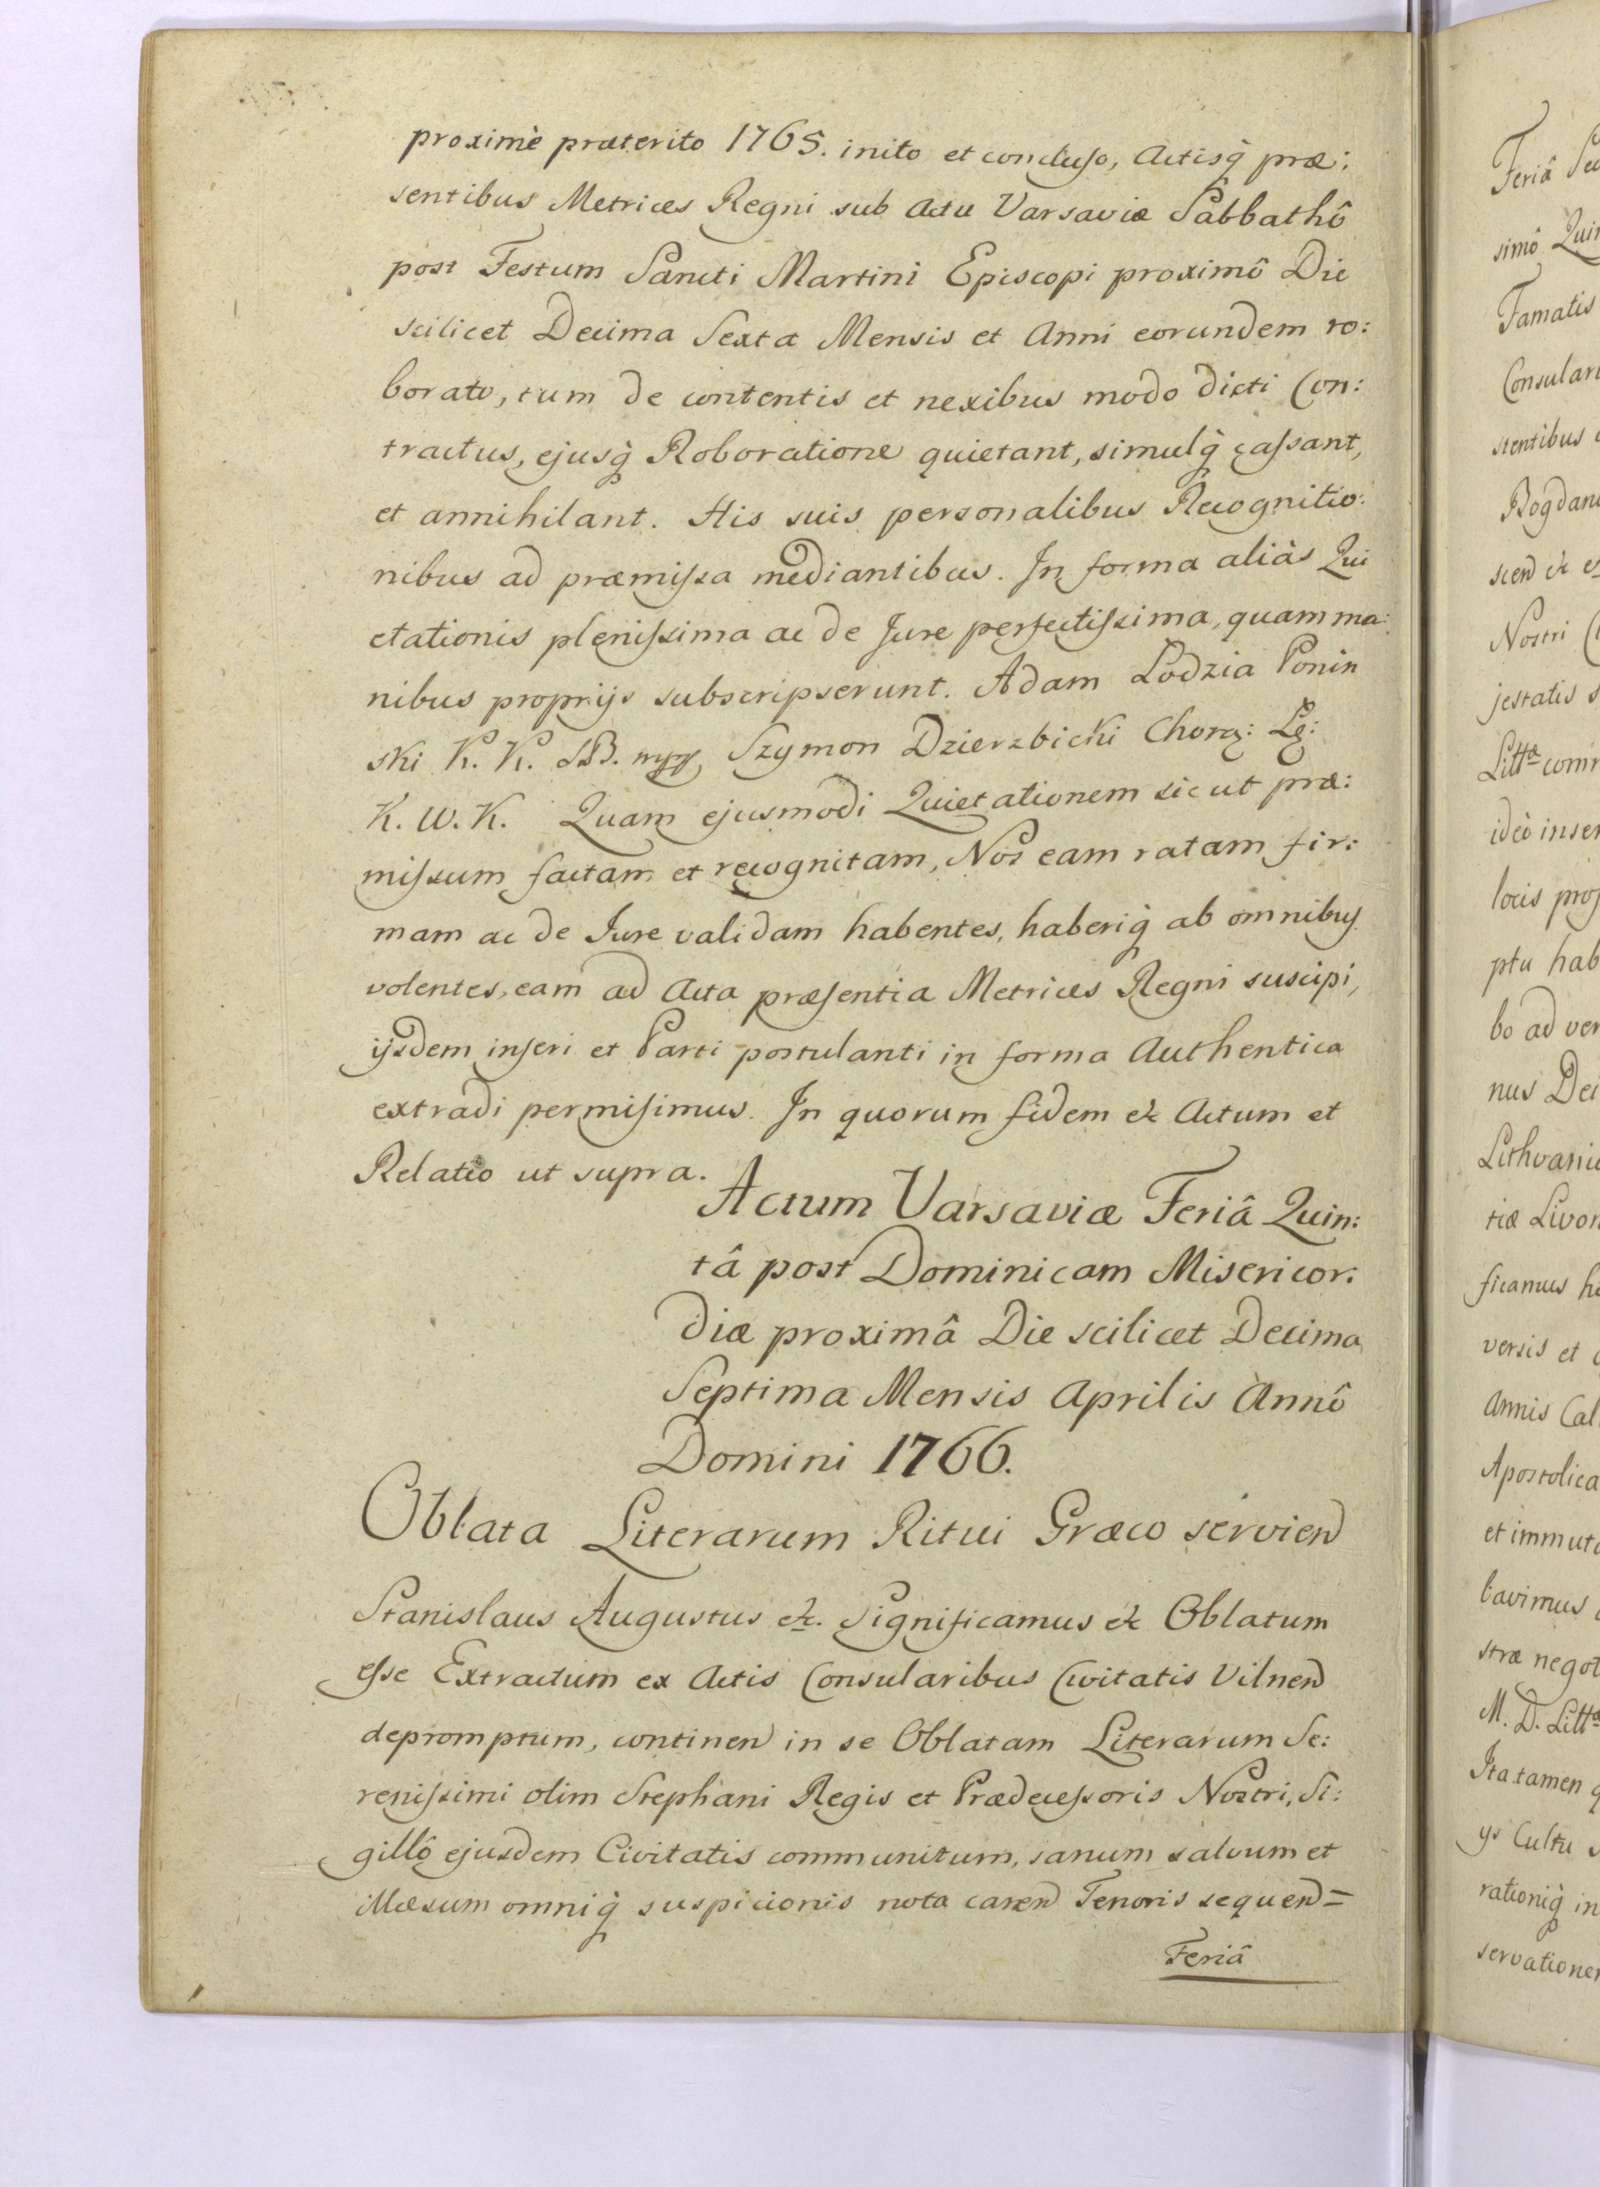 proximè præterito 1765. inito et concluso, Actisq̀ præ:
sentibus Metrices Regni sub Actu Varsaviæ Sabbathô
post Festum Sancti Martini Episcopi proximô Die
scilicet Decima Sexta Mensis et Anni eorundem ro:
borato, tum de contentis et nexibus modo dicti Con:
tractus, ejusq̀ Roboratione quietant, simulq̀ cassant,
et annihilant. His suis personalibus Recognitio:
nibus ad præmissa mediantibus. In forma aliàs Qui
etationis plenissima ac de Jure perfectissima, quam ma:
nibus proprijs subscripserunt. Adam Lodzia Ponin
ski K. K. Szymon Dzierzbicki Chorą: Łę:
K. W. K. Quam ejusmodi Quietationem sicut præ:
missum factam et recognitam, Nos eam ratam fir:
mam ac de Jure validam habentes, haberiq̀ ab omnibus
volentes, eam ad Acta præsentia Metrices Regni suscipi,
ijsdem inseri et Parti postulanti in forma Authentica
extradi permisimus. In quorum fidem &c Actum et
Relatio ut supra.
Actum Varsaviæ Feriâ Quin:
tâ post Dominicam Misericor:
diæ proximâ Die scilicet Decima
Septima Mensis Aprilis Annô
Domini 1766.
Oblata Literarum Ritui Græco servien
Stanislaus Augustus &c. Significamus &c Oblatum
esse Extractum ex Actis Consularibus Civitatis Vilnen
depromptum, continen in se Oblatam Literarum Se:
renissimi olim Stephani Regis et Prædecessoris Nostri, Si:
gillô ejusdem Civitatis communitum, sanum salvum et
illæsum omniq̀ suspicionis nota caren Tenoris sequen=
Feriâ
Feriâ
simô
Famatis
stentibus
Nostri
jestatis
Litt<sup>a</sup>
ideò
locis
ptu
bo ad
nus Dei
tiæ
versis et
Annis
et
bavimus
stræ
M. D. Litt<sup>a</sup>
Ita tamen
Cultu
rationiq̀ in